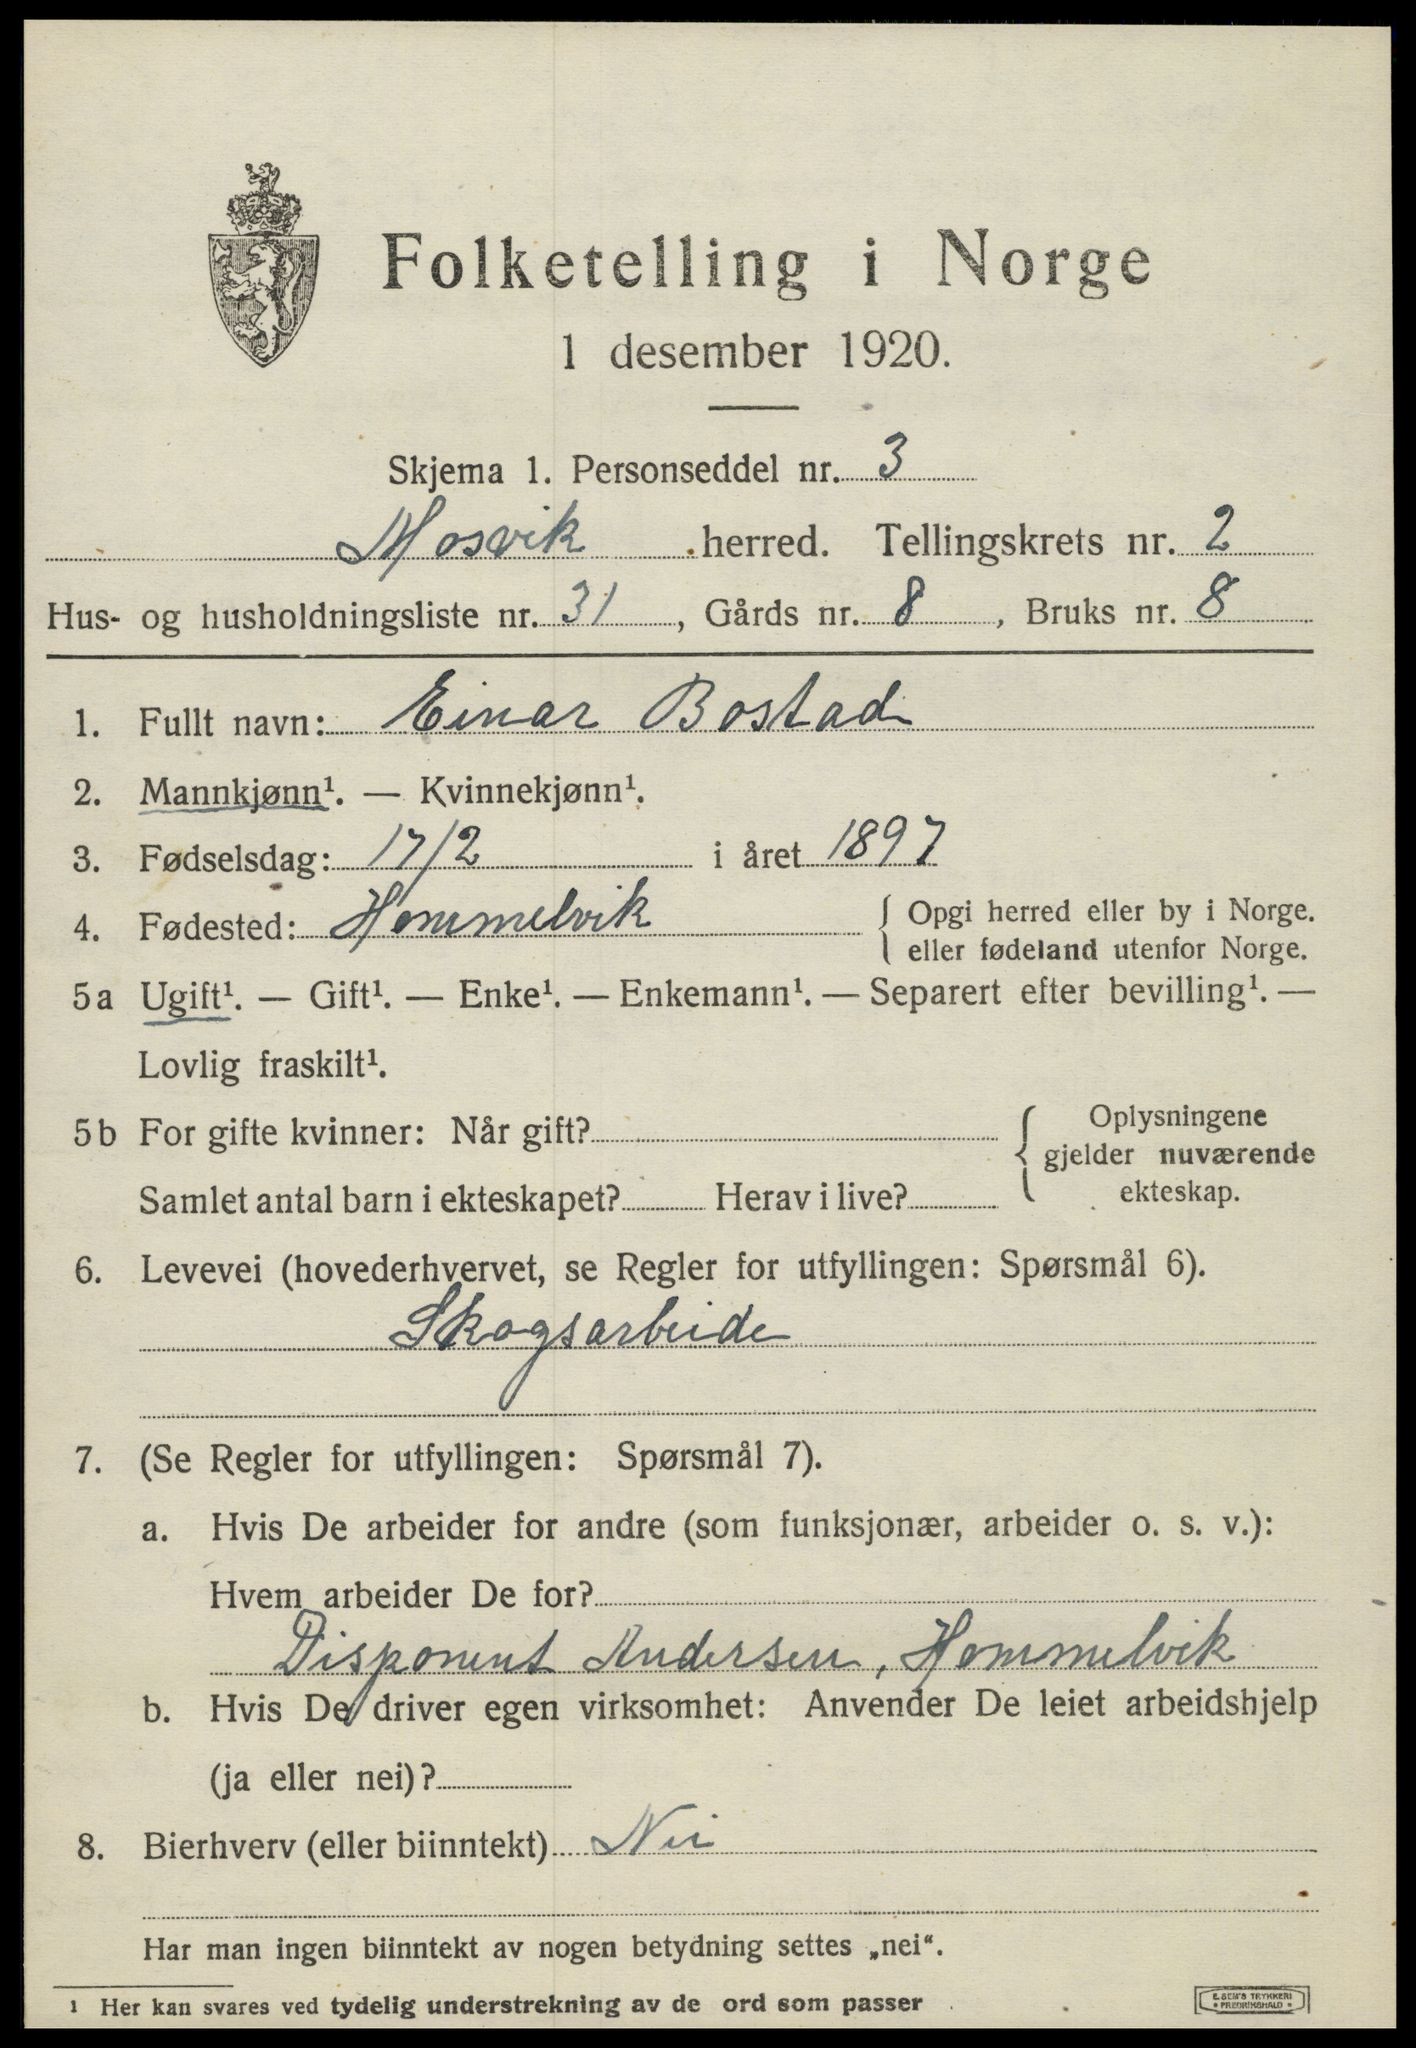 Folketelling i Norge
1 desember 1920.
Skjema 1. Personseddel nr. 3
Mosvik herred. Tellingskrets nr. 2
Hus- og husholdningsliste nr. 31, Gårds nr. 8, Bruks nr. 8
1. Fullt navn: Einar Bostad
2. Mannkjønn¹. — Kvinnekjønn¹.
3. Fødselsdag: 17/2 i året 1897
4. Fødested: Hommelvik { Opgi herred eller by i Norge.
eller fødeland utenfor Norge.
5a Ugift¹. — Gift¹. — Enke¹. — Enkemann¹. — Separert efter bevilling¹. —
Lovlig fraskilt¹.
5b For gifte kvinner: Når gift? { Oplysningene
gjelder nuværende
Samlet antal barn i ekteskapet? Herav i live? ekteskap.
6. Levevei (hovederhvervet, se Regler for utfyllingen: Spørsmål 6).
Skogsarbeide
7. (Se Regler for utfyllingen: Spørsmål 7).
a. Hvis De arbeider for andre (som funksjonær, arbeider o. s. v.):
Hvem arbeider De for?
Disponent Andersen, Hommelvik
b. Hvis De driver egen virksomhet: Anvender De leiet arbeidshjelp
(ja eller nei)?
8. Bierhverv (eller biinntekt) Nei
Har man ingen biinntekt av nogen betydning settes „nei“.
¹ Her kan svares ved tydelig understrekning av de ord som passer
E. SEM'S TRYKKERI
• FREDRIKSHALD •